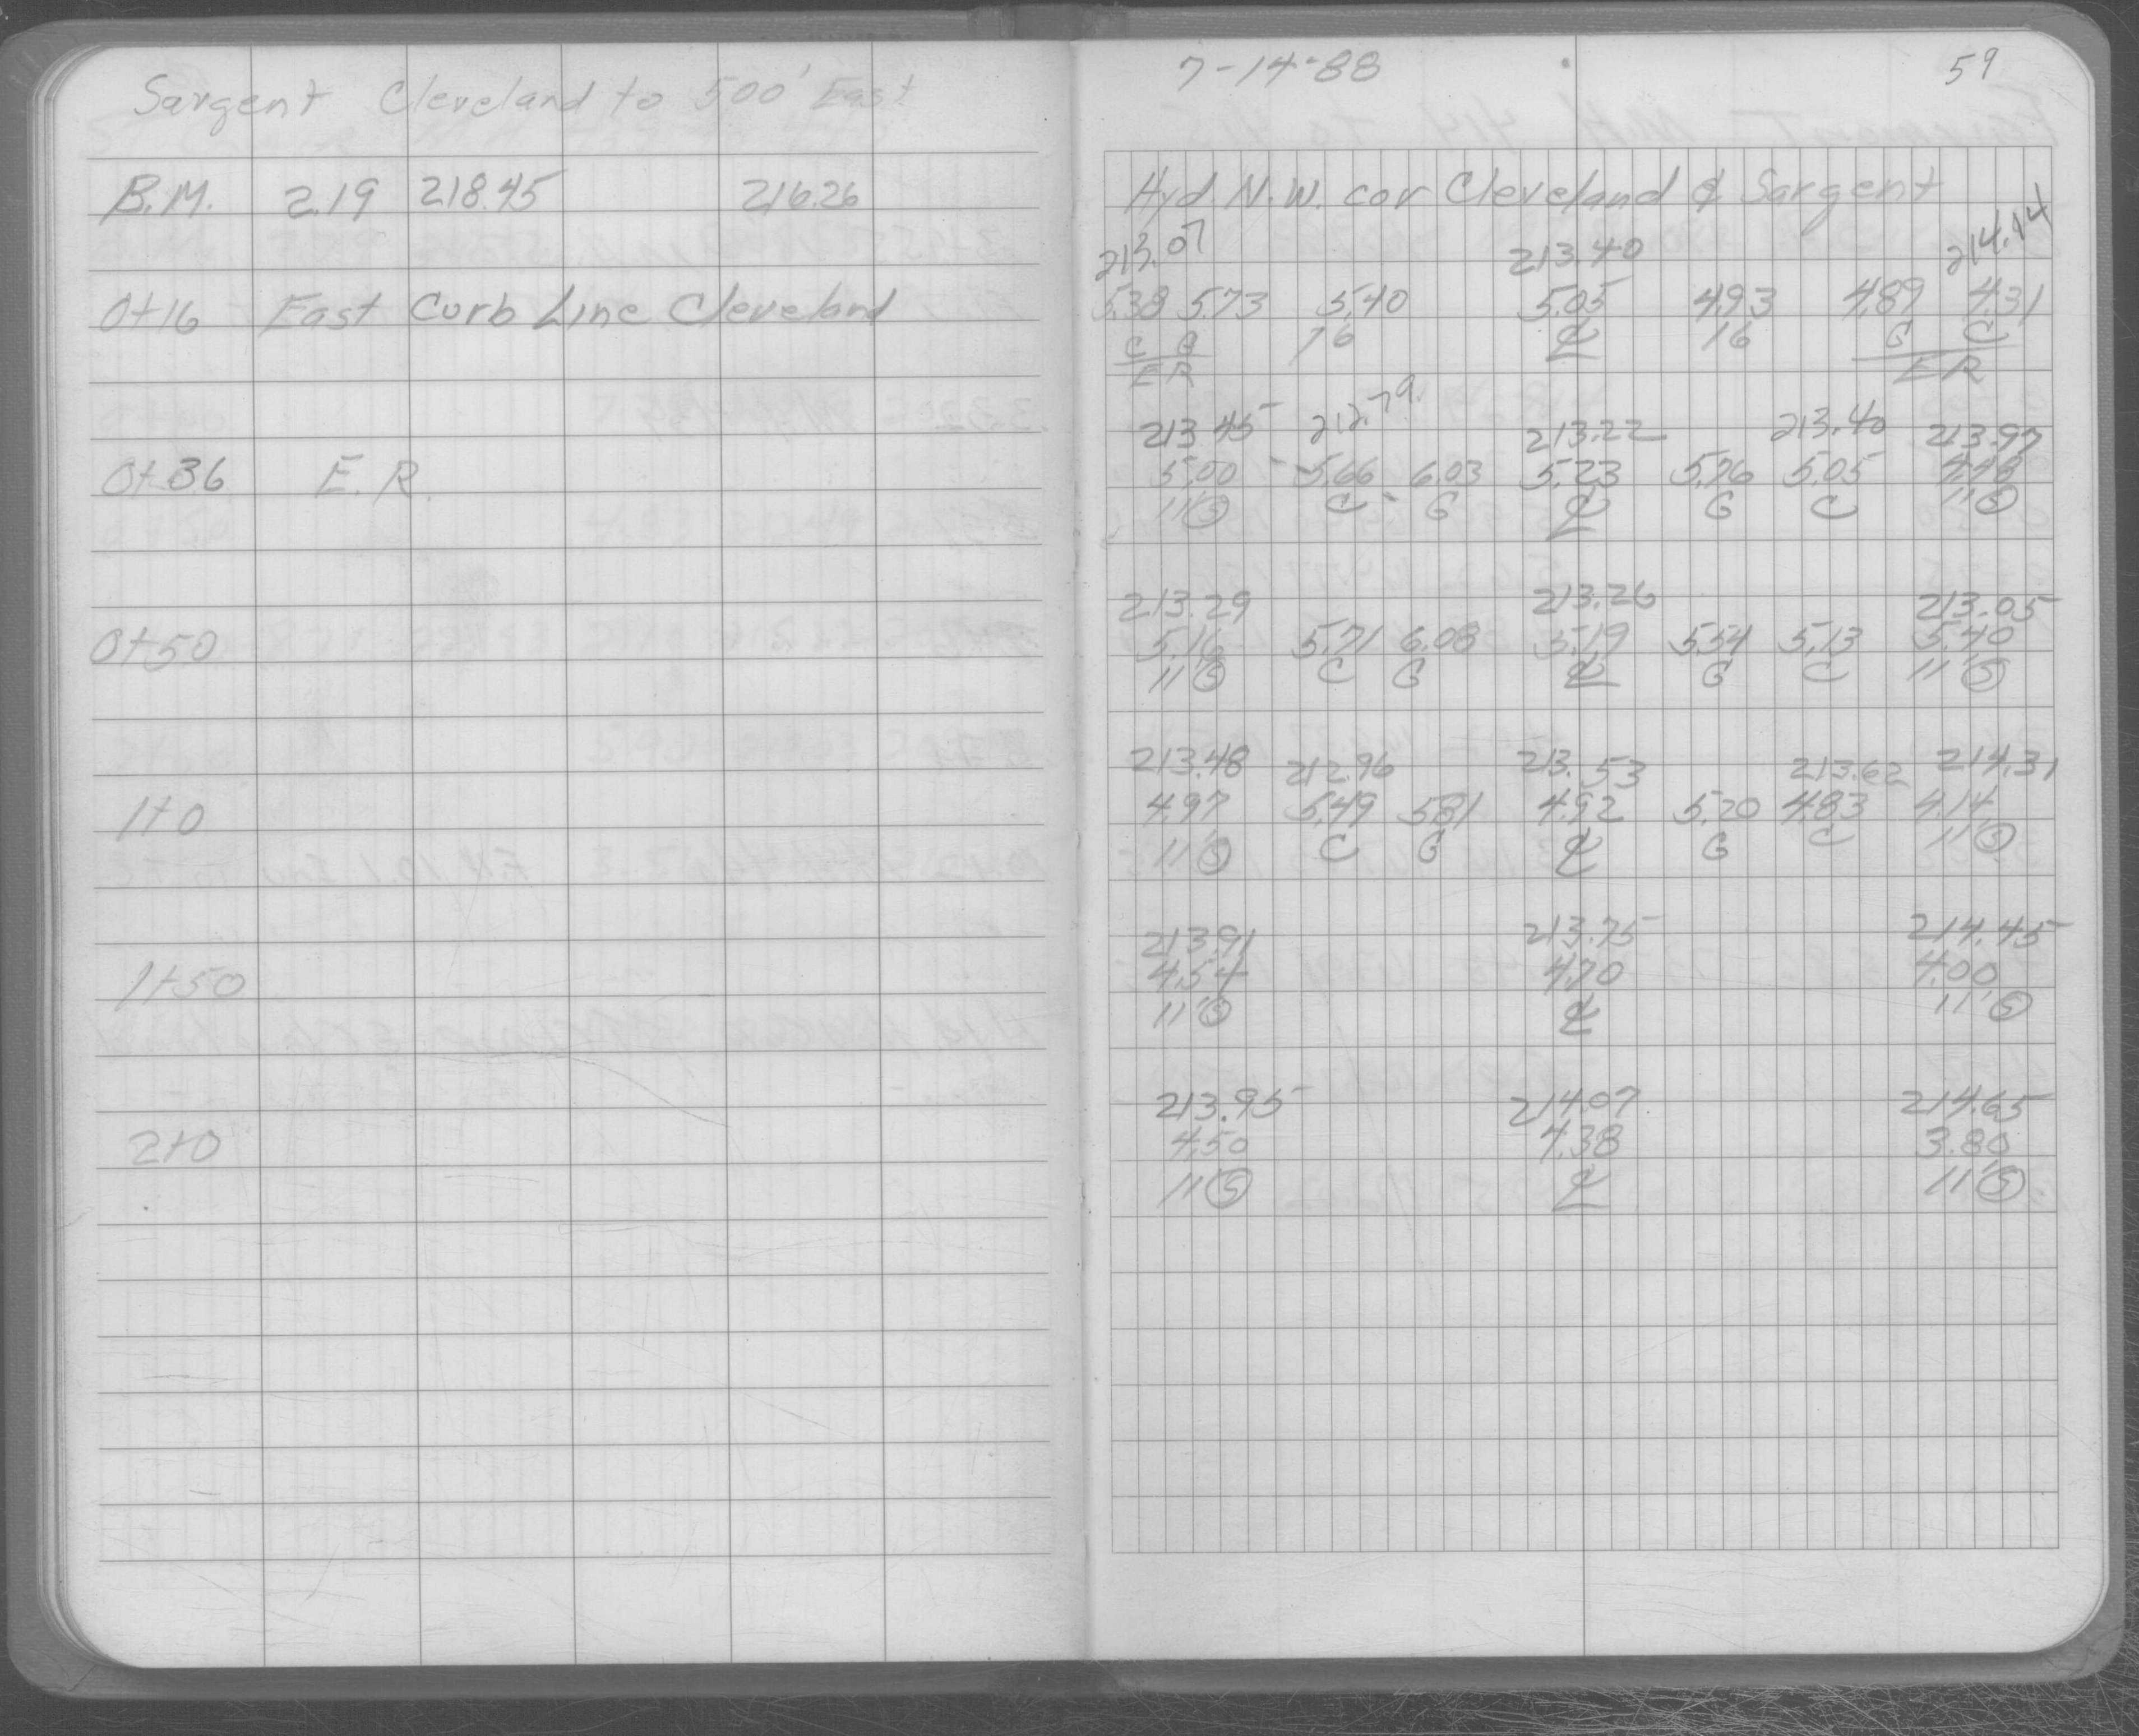 Sargent Cleveland to 500' East
B.M. 2.19 218.45 216.26
0+16 East Curb Line Cleveland
0+36 E.R.
0+50
1+0
1+50
2+0
7-14-88 59
Hyd N.W. cor Cleveland & Sargent
213.07 213.40 214.14
5.38 5.73 5.40 5.05 4.93 4.89 4.31
C G 16 ℄ 16 G C
ER ER
213.45 212.79 213.22 213.40 213.97
5.00 5.66 6.03 5.23 5.76 5.05 4.48
11' S C G ℄ G C 11' S
213.29 213.26 213.05
5.16 5.71 6.08 5.19 5.54 5.13 5.40
11' S C G ℄ G C 11' S
213.48 212.96 213.53 213.62 214.31
4.97 5.49 5.81 4.92 5.20 4.83 4.14
11' S C G ℄ G C 11' S
213.91 213.75 214.45
4.54 4.70 4.00
11' S ℄ 11' S
213.95 214.07 214.65
4.50 4.38 3.80
11' S ℄ 11' S